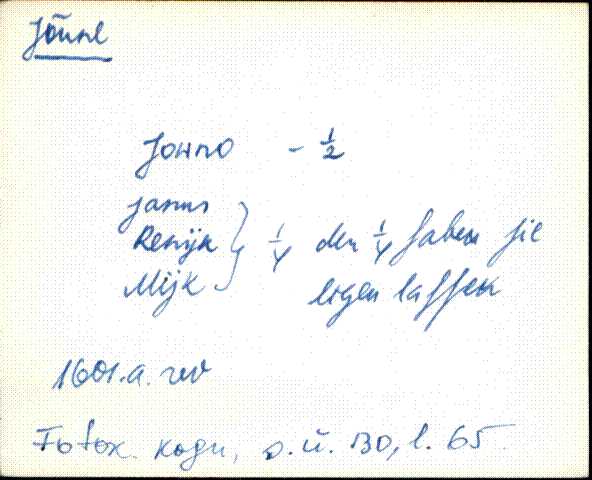 Jõune
Jowno - 1/2
Janus
Renijk } 1/4 den 1/4 haben sie
Mijk ligen lassen
1601.a. rev
Fotok. kogu, s.ü. 130, l. 65